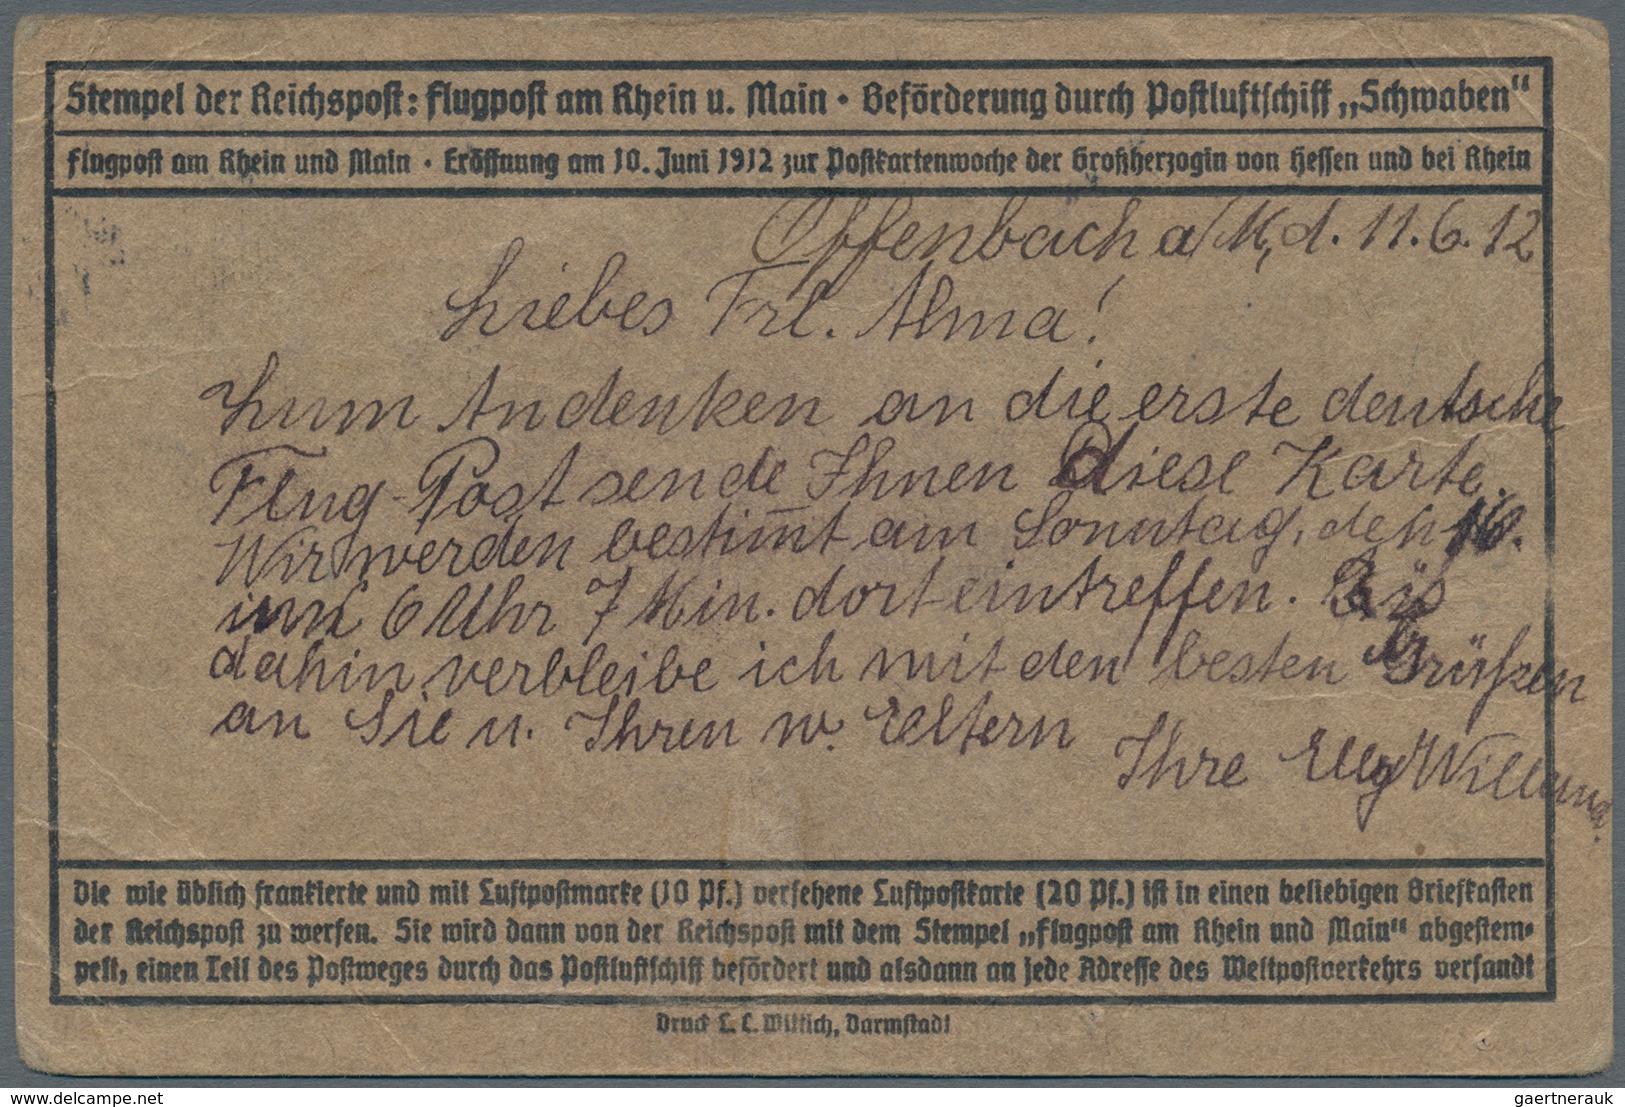 Stempel der Reichspost: Flugpost am Rhein u. Main · Beförderung durch Postluftschiff „Schwaben“
Flugpost am Rhein und Main · Eröffnung am 10. Juni 1912 zur Postkartenwoche der Großherzogin von Hessen und bei Rhein
Offenbach a/M, d. 11.6.12
Liebes Frl. Alma!
Zum Andenken an die erste deutsche
Flug-Post sende Ihnen diese Karte.
Wir werden bestim̄t am Sonntag, den 16.
6 Uhr 7 Min. dort eintreffen. Bis
dahin verbleibe ich mit den besten Grüßen
an Sie u. Ihren w. Eltern
Ihre Elly
Die wie üblich frankierte und mit Luftpostmarke (10 Pf.) versehene Luftpostkarte (20 Pf.) ist in einen beliebigen Briefkasten
der Reichspost zu werfen. Sie wird dann von der Reichspost mit dem Stempel „Flugpost am Rhein und Main“ abgestem-
pelt, einen Teil des Postweges durch das Postluftschiff befördert und alsdann an jede Adresse des Weltpostverkehrs versandt
Druck L. C. Wittich, Darmstadt
www.delcampe.net
gaertnerauk